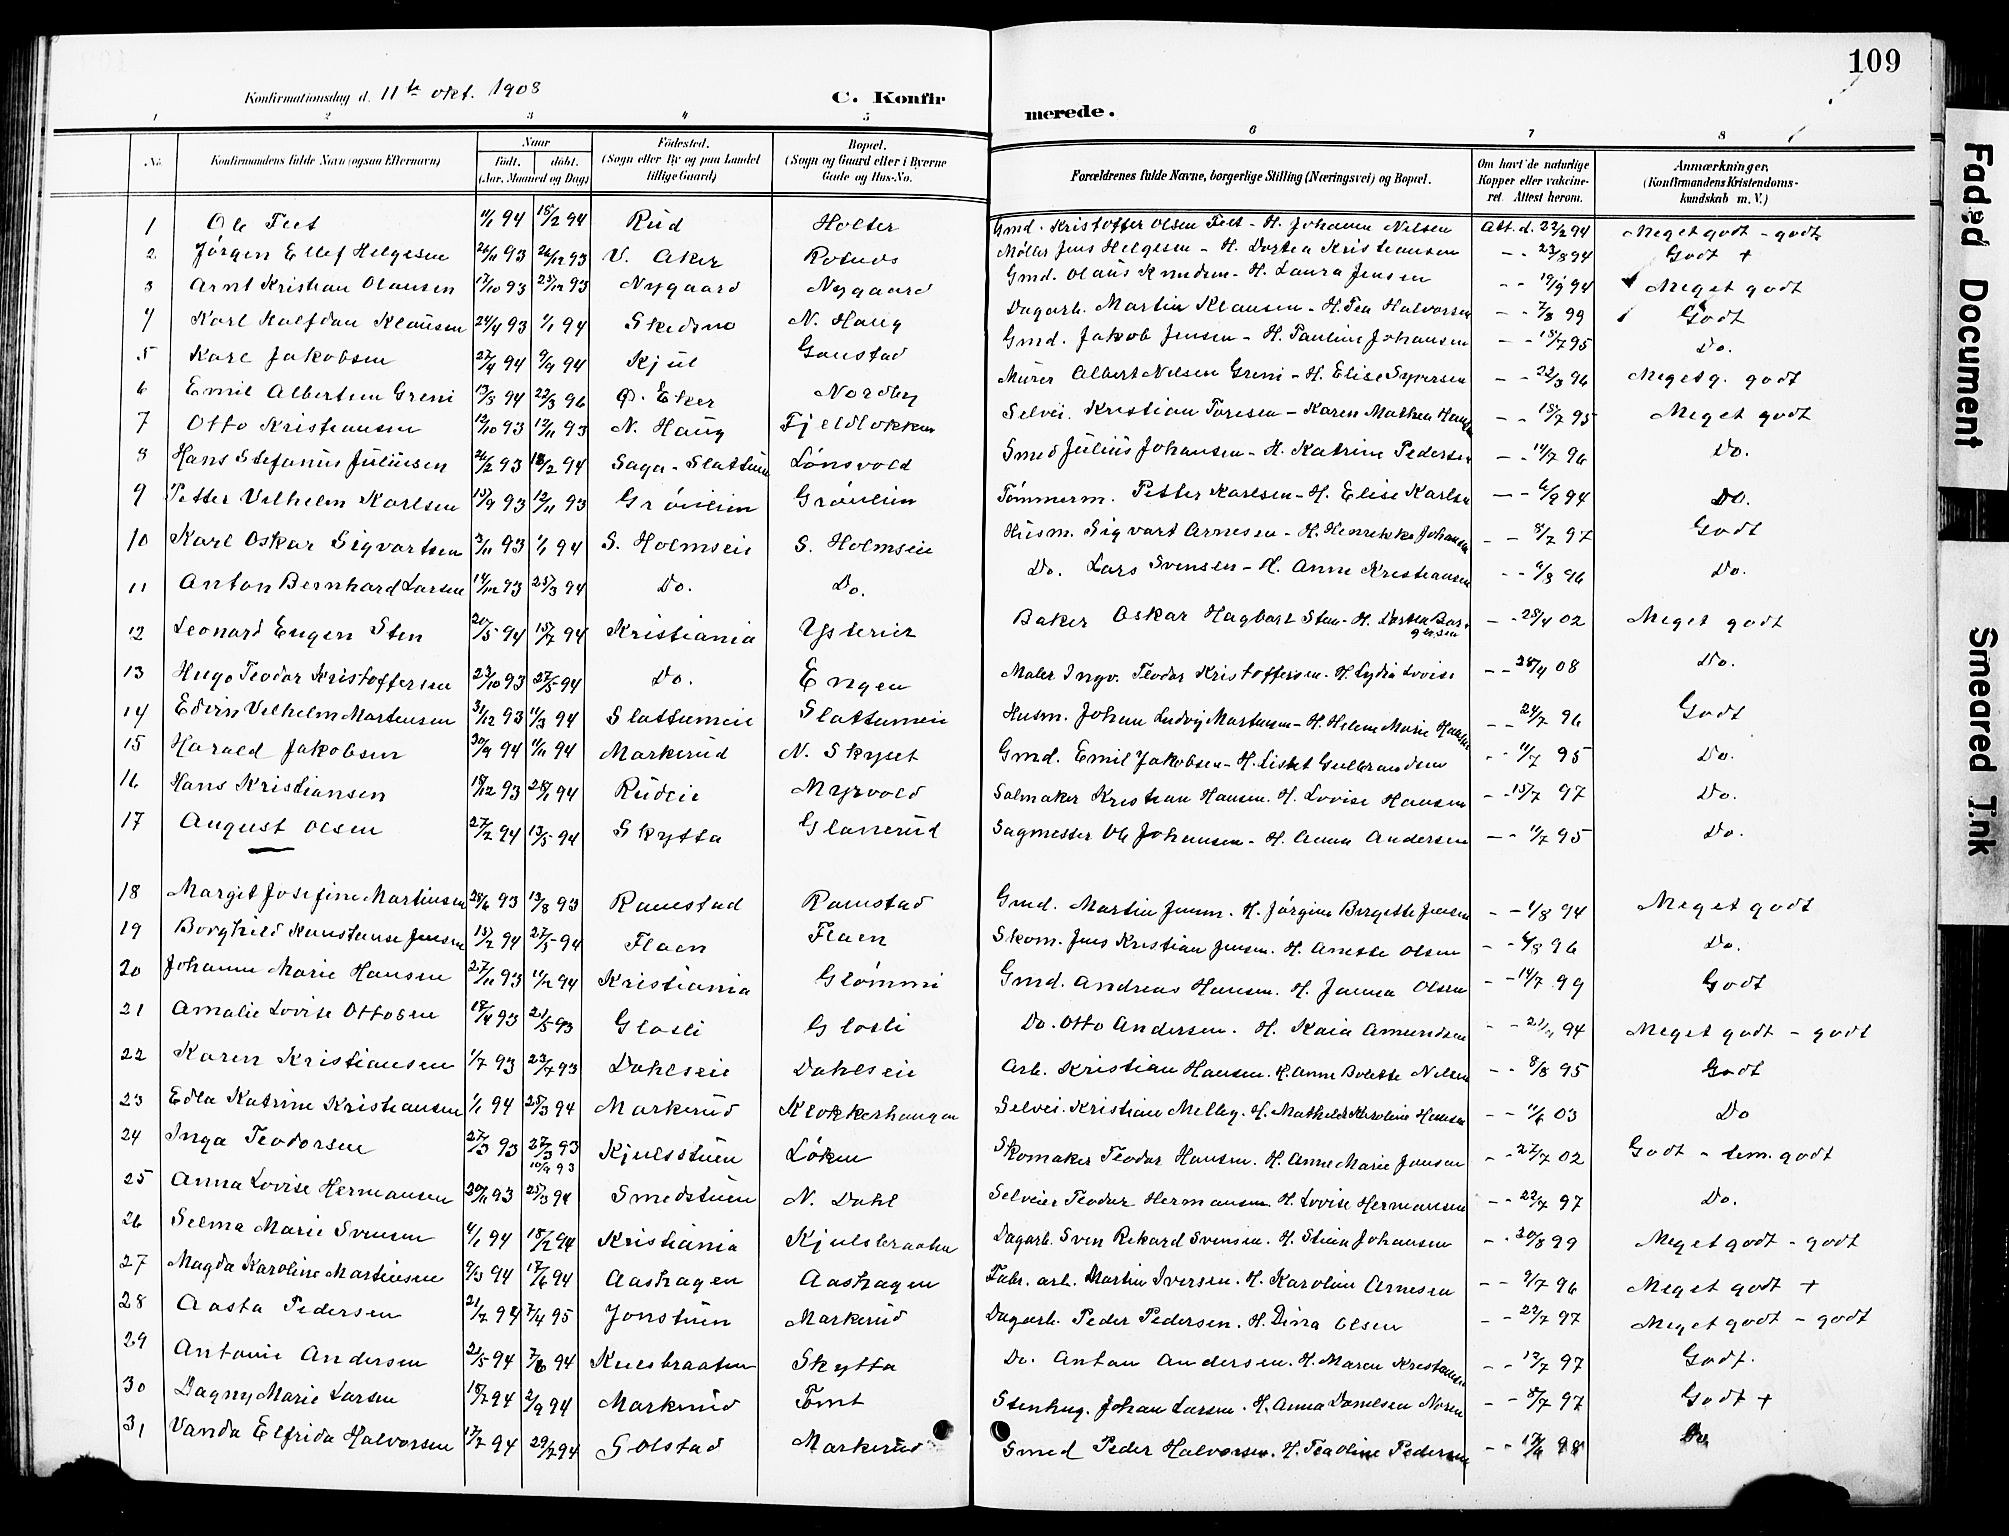 109
Konfirmationsdag d. 11te okt. 1908
C. Konfirmerede.
1 2 3 4 5 6 7 8
No. Konfirmandens fulde Navn (ogsaa Efternavn) Naar født. døbt. (Aar, Maaned og Dag) Fødested. (Sogn eller By og paa Landet tillige Gaard) Bopæl. (Sogn og Gaard eller i Byerne Gade og Hus-No. Forældrenes fulde Navne, borgerlige Stilling (Næringsvei) og Bopæl. Om havt de naturlige Kopper eller vakcineret. Attest herom. Anmærkninger. (Konfirmandens Kristendomskundskab m. V.)
1 Ole Feet 11/1 94 18/2 94 Rud Holter Gmd. Kristoffer Olsen Feet - H. Johanne Nilsen Att. d. 22/2 94 Meget godt - godt
2 Jørgen Ellef Helgesen 26/11 93 26/12 93 V. Aker Møller Jens Helgesen - H. Dortea Kristiansen - - 23/8 94 Godt +
3 Arnt Kristian Olausen 17/10 93 25/12 93 Nygaard Nygaard Gmd. Olaus Knudsen - H. Laura Jensen - - 19/9 94 Meget godt
4 Karl Halfdan Klausen 24/4 93 1/1 94 Skedsmo N. Haug Dagarb. Martin Klausen - H. Tea Halvorsen - - 7/8 99 Godt
5 Karl Jakobsen 27/4 94 9/9 94 Kjul Gaustad Gmd. Jakob Jensen - H. Pauline Johansen - - 15/7 95 Do.
6 Emil Albertsen Greni 13/3 94 22/3 96 Ø. Eker Nordby Murer Albert Nilsen Greni - H. Elise Syversen - - 22/3 96 Meget g. godt
7 Otto Kristiansen 12/10 93 12/11 93 N. Haug Fjeldløkken Selvei. Kristian Toresen - Karen Mathea - - 15/7 95 Meget godt
8 Hans Stefanus Juliusen 26/12 93 18/2 94 Saga - Slattum Lønsvold Smed Julius Johansen - H. Katrine Pedersen - - 14/7 96 Do.
9 Petter Vilhelm Karlsen 15/9 93 12/11 93 Grønlien Grønlien Tømmerm. Petter Karlsen - H. Elise Karlsen - - 6/9 94 Do.
10 Karl Oskar Sigvartsen 3/11 93 1/1 94 S. Holmseie S. Holmseie Husm. Sigvart Arnesen - H. Henrikke Johansen - - 8/7 97 Godt
11 Anton Bernhard Larsen 14/12 93 25/3 94 Do. Do. Do. Lars Svensen - H. Anne Kristiansen - - 9/8 96 Do.
12 Leonard Eugen Sten 20/5 94 15/7 94 Kristiania Baker Oskar Hagbart Sten - H. - - 28/4 02 Meget godt
13 Hugo Teodor Kristoffersen 23/10 93 27/5 94 Do. Engen Maler Ingv. Teodor Kristoffersen. H. Lydia Lovise - - 28/4 08 Do.
14 Edvin Vilhelm Martinsen 31/12 93 11/3 94 Slattumeie Slattumeie Husm. Johan Ludvig Martinsen - H. Helene Marie - - 24/7 96 Godt
15 Harald Jakobsen 30/9 94 11/11 94 Markerud N. Skyset Gmd. Emil Jakobsen - H. Lisbet Gulbrandsen - - 11/7 95 Do.
16 Hans Kristiansen 18/12 93 28/1 94 Rudeie Myrvold Salmaker Kristian Hansen. H. Lovise Hansen - - 15/7 97 Do.
17 August Olsen 27/2 94 13/5 94 Skytta Glanerud Sagmester Ole Johansen - H. Anna Andersen - - 11/7 95 Do.
18 Margit Josefine Martinsen 28/6 93 13/8 93 Ramstad Ramstad Gmd. Martin Jensen. H. Jørgine Bergette Jensen - - 1/8 94 Meget godt
19 Borghild Konstanse Jensen 15/2 94 27/5 94 Flaen Flaen Skom. Jens Kristian Jensen. H. Anette Olsen - - 6/8 96 Do.
20 Johanne Marie Hansen 27/11 93 11/2 94 Kristiania Glømmi Gmd. Andreas Hansen. H. Janna Olsen - - 14/7 99 Godt
21 Amalie Lovise Ottosen 18/4 93 21/5 93 Glosli Glosli Do. Otto Andersen. H. Kaia Amundsen - - 21/11 94 Meget godt - godt
22 Karen Kristiansen 1/7 93 23/7 93 Dahlseie Dahlseie Arb. Kristian Hansen. H. Anne Bolette Nilsen - - 8/8 95 Godt
23 Edla Katrine Kristiansen 1/1 94 25/3 94 Markerud Klokkerhaugen Selvei. Kristian Melby. H. Mathilde Karoline Hansen - - 11/6 03 Do
24 Inga Teodorsen 27/3 93 27/3 93 10/9 93 Kjulsstuen Løken Skomaker Teodor Hansen. H. Anne Marie Jensen - - 27/7 02 Godt - tem. godt
25 Anna Lovise Hermansen 20/11 93 25/3 94 Smedstuen N. Dahl Selveier Teodor Hermansen. H. Lovise Hermansen - - 22/7 97 Do.
26 Selma Marie Svensen 4/1 94 18/2 94 Kristiania Kjulsbraaten Dagarb. Sven Rikard Svensen. H. Stina Johansen - - 20/8 99 Meget godt - godt
27 Magda Karoline Martinsen 9/3 94 17/6 94 Aashagen Aashagen Fabr. arb. Martin Iversen. H. Karoline Arnesen - - 9/7 96 Meget godt +
28 Aasta Pedersen 21/7 94 7/4 95 Jonstuen Markerud Dagarb. Peder Pedersen. H. Dina Olsen - - 22/7 97 Meget godt - godt
29 Antonie Andersen 21/5 94 7/6 94 Kulsbraaten Skytta Do. Anton Andersen. H. Maren Kristiansen - - 13/7 97 Godt.
30 Dagny Marie Larsen 18/7 94 2/9 94 Markerud Tomt Stenhug. Johan Larsen. H. Anna Danielsen - - 8/7 97 Godt +
31 Vanda Elfrida Halvorsen 17/7 94 29/7 94 Golstad Markerud Smed Peder Halvorsen. H. Teoline Pedersen - - 17/6 98 Do
Faded Document
Smeared Ink